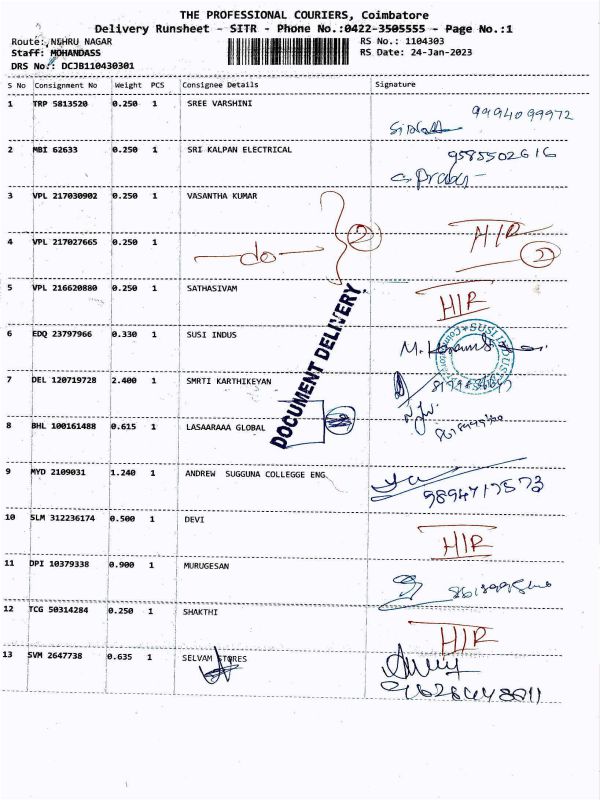 THE PROFESSIONAL COURIERS, Coimbatore
Delivery Runsheet - SITR - Phone No.:0422-3505555 - Page No.:1
Route: NEHRU NAGAR
RS No.: 1104303
Staff: MOHANDASS
RS Date: 24-Jan-2023
DRS No: DCJB110430301
S No Consignment No Weight PCS Consignee Details Signature
1 TRP 5813520 0.250 1 SREE VARSHINI 9994099972
2 MBI 62633 0.250 1 SRI KALPAN ELECTRICAL 9585502616
3 VPL 217030902 0.250 1 VASANTHA KUMAR
4 VPL 217027665 0.250 1 do 2 HIR 2
5 VPL 216620880 0.250 1 SATHASIVAM HIR
6 EDQ 23797966 0.330 1 SUSI INDUS
7 DEL 120719728 2.400 1 SMRTI KARTHIKEYAN
8 BHL 100161488 0.615 1 LASAARAAA GLOBAL
DOCUMENT DELIVERY.
9 MYD 2109031 1.240 1 ANDREW SUGGUNA COLLEGGE ENG 9894717573
10 SLM 312236174 0.500 1 DEVI HIR
11 DPI 10379338 0.900 1 MURUGESAN
12 TCG 50314284 0.250 1 SHAKTHI HIR
13 SVM 2647738 0.635 1 SELVAM STORES